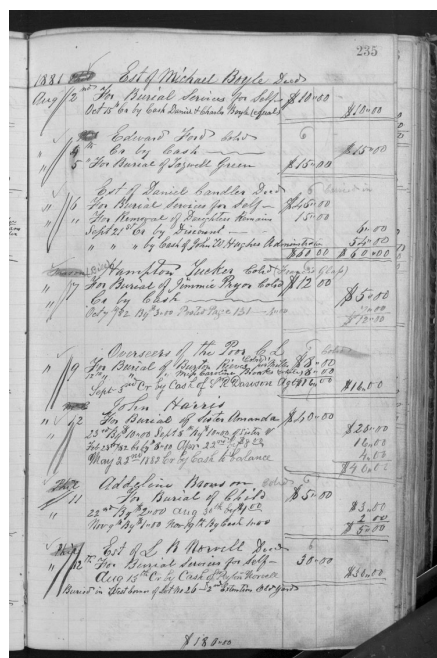 235
1881 Est of Michael Boyle Decd
Aug 2nd For Burial Services for Self $10.00
Oct 15th Cr by Cash Daniel & Charles Boyle $10.00
Edward Ford Cold 6
" 4 Cr by Cash $15.00
" 5 " For Burial of Tazwell Green $15.00
Est of Daniel Candler Decd
" 6 For Burial Services for Self $45.00
" " For Removal of Daughters Remains 15.00
Sept 21st Cr by Discount 6.00
" " " by Cash of John W. Hughes Administrator 54.00
$60.00 $60.00
Hampton Tucker Cold
" 7 For Burial of Jimmie Pryor Cold $12.00
Cr by Cash $5.00
Oct 7th/82 By Posted Page 131
$12.00
Overseers of the Poor C L
" 9 For Burial of Burton $8.00
" " Caroline Banks 8.00
Sept 3rd Cr by Cash of Dawson Agt $16.00
John Harris
" 9/2 For Burial of Sister Amanda $40.00
23rd By $10.00 Sept 8th By $10.00 $20.00
Feb 23rd/82 Apr 22nd 16.00
May 23rd 1882 Cr by Cash balance 4.00
$40.00
Addeline Brown
" 11 For Burial of Child $5.00
22nd By $2.00 Aug 30th by $1.00 $3.00
Nov 9th By $1.00 Nov By Cash 1.00 2.00
$5.00
Est of L R Norvell Decd
" 12th For Burial Services for Self 30.00
Aug 15th Cr by Cash Norvell $30.00
Buried in West corner of Lot No 26 2nd Extention Old Yard
$180.00